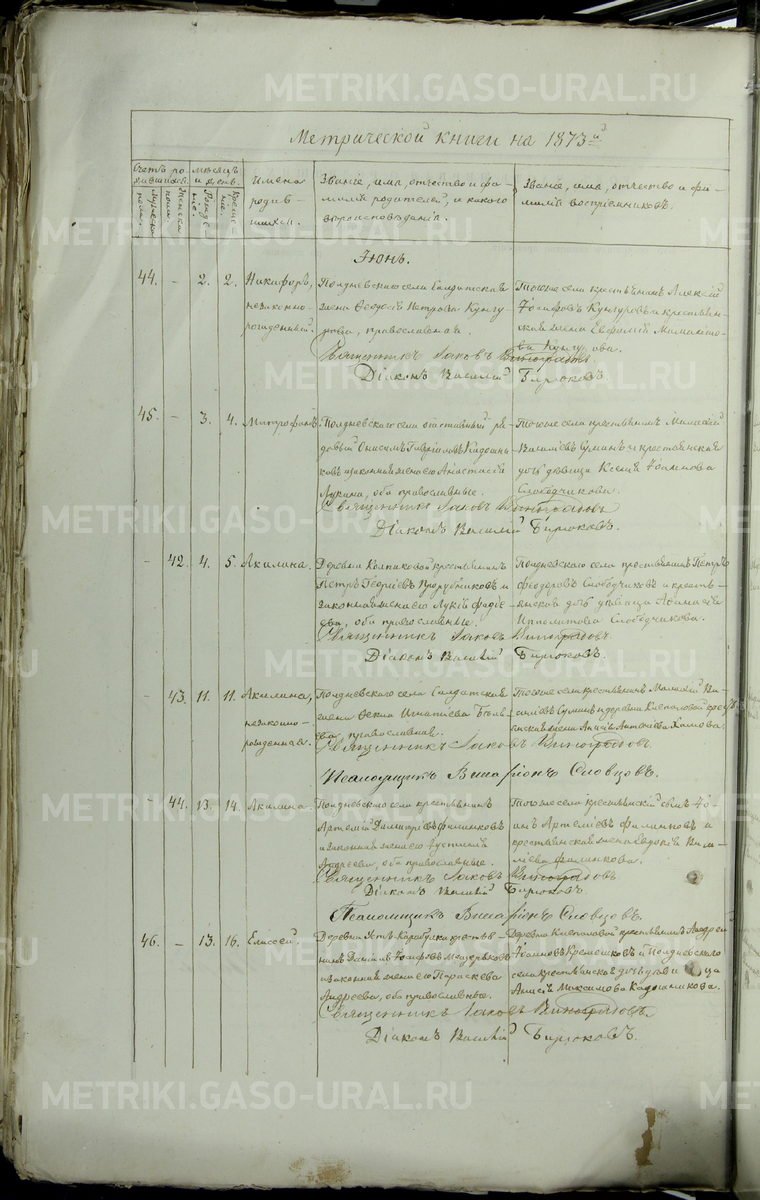 METRIKI.GASO-URAL.RU
Метрической книги на 1873й
Счетъ родившихся.
Мужеска пола.
Женска пола.
Месяцъ и день.
Рожденіе.
Крещеніе.
Имена родившихся.
Званіе, имя, отчество и фамилія родителей, и какого вероисповеданія.
Званіе, имя, отчество и фамилія воспріемниковъ.
Іюнь.
44. - 2. 2. Никифоръ, незаконнорожденный.
Полдневскаго села солдатская
жена Феодосія Петрова Кунгурова, православная.
Тогоже села крестьянинъ Алексій
Іосифовъ Кунгуровъ и крестьянская жена Евфимія
Кунгурова.
Священникъ Іаковъ Виноградовъ
Діаконъ Василій Бирюковъ
45. - 3. 4. Митрофанъ.
Полдневскаго села отставный рядовый Гавріиловъ
и законная жена его Анастасія
Лукина, оба православные.
Тогоже села крестьянинъ
Василіевъ Суминъ и крестьянская
дочь девица Ксенія Іоаннова
Слободчикова.
Священникъ Іаковъ Виноградовъ
Діаконъ Василій Бирюковъ.
- 42. 4. 5. Акилина.
Деревни Колпаковой крестьянинъ
Петръ Георгіевъ Прорубниковъ и
законная жена его Лукія Фадеева, оба православные.
Полдневскаго села крестьянинъ Петръ
Феодоровъ Слободчиковъ и крестьянская дочь девица
Ипполитова Слободчикова.
Священникъ Іаковъ Виноградовъ.
Діаконъ Василій Бирюковъ.
- 43. 11. 11. Акилина, незаконнорожденная.
Полдневскаго села Солдатская
жена Фекла Игнатіева
православная.
Тогоже села крестьянинъ
Василіевъ Суминъ и деревни
жена Анисія Антоніева
Священникъ Іаковъ Виноградовъ.
Псаломщикъ Виссаріонъ Словцовъ.
- 44. 13. 14. Акилина.
Полдневскаго села крестьянинъ
Артемій Димитріевъ Филинковъ
и законная жена его Іустинія
Андреева, оба православные.
Тогоже села крестьянскій сынъ Іоаннъ Артеміевъ Филинковъ и
крестьянская жена Евдокія
Филинкова.
Священникъ Іаковъ Виноградовъ
Діаконъ Василій Бирюковъ.
Псаломщикъ Виссаріонъ Словцовъ.
46. - 13. 16. Елисей.
Деревни Усть-Карабулки крестьянинъ Даніилъ Іосифовъ Мещеряковъ
и законная жена его Параскева
Андреева, оба православные.
Деревни крестьянинъ Андрей
Іоанновъ и Полдневскаго
села крестьянская дочь девица
Анисія Максимова
Священникъ Іаковъ Виноградовъ.
Діаконъ Василій Бирюковъ.
1873